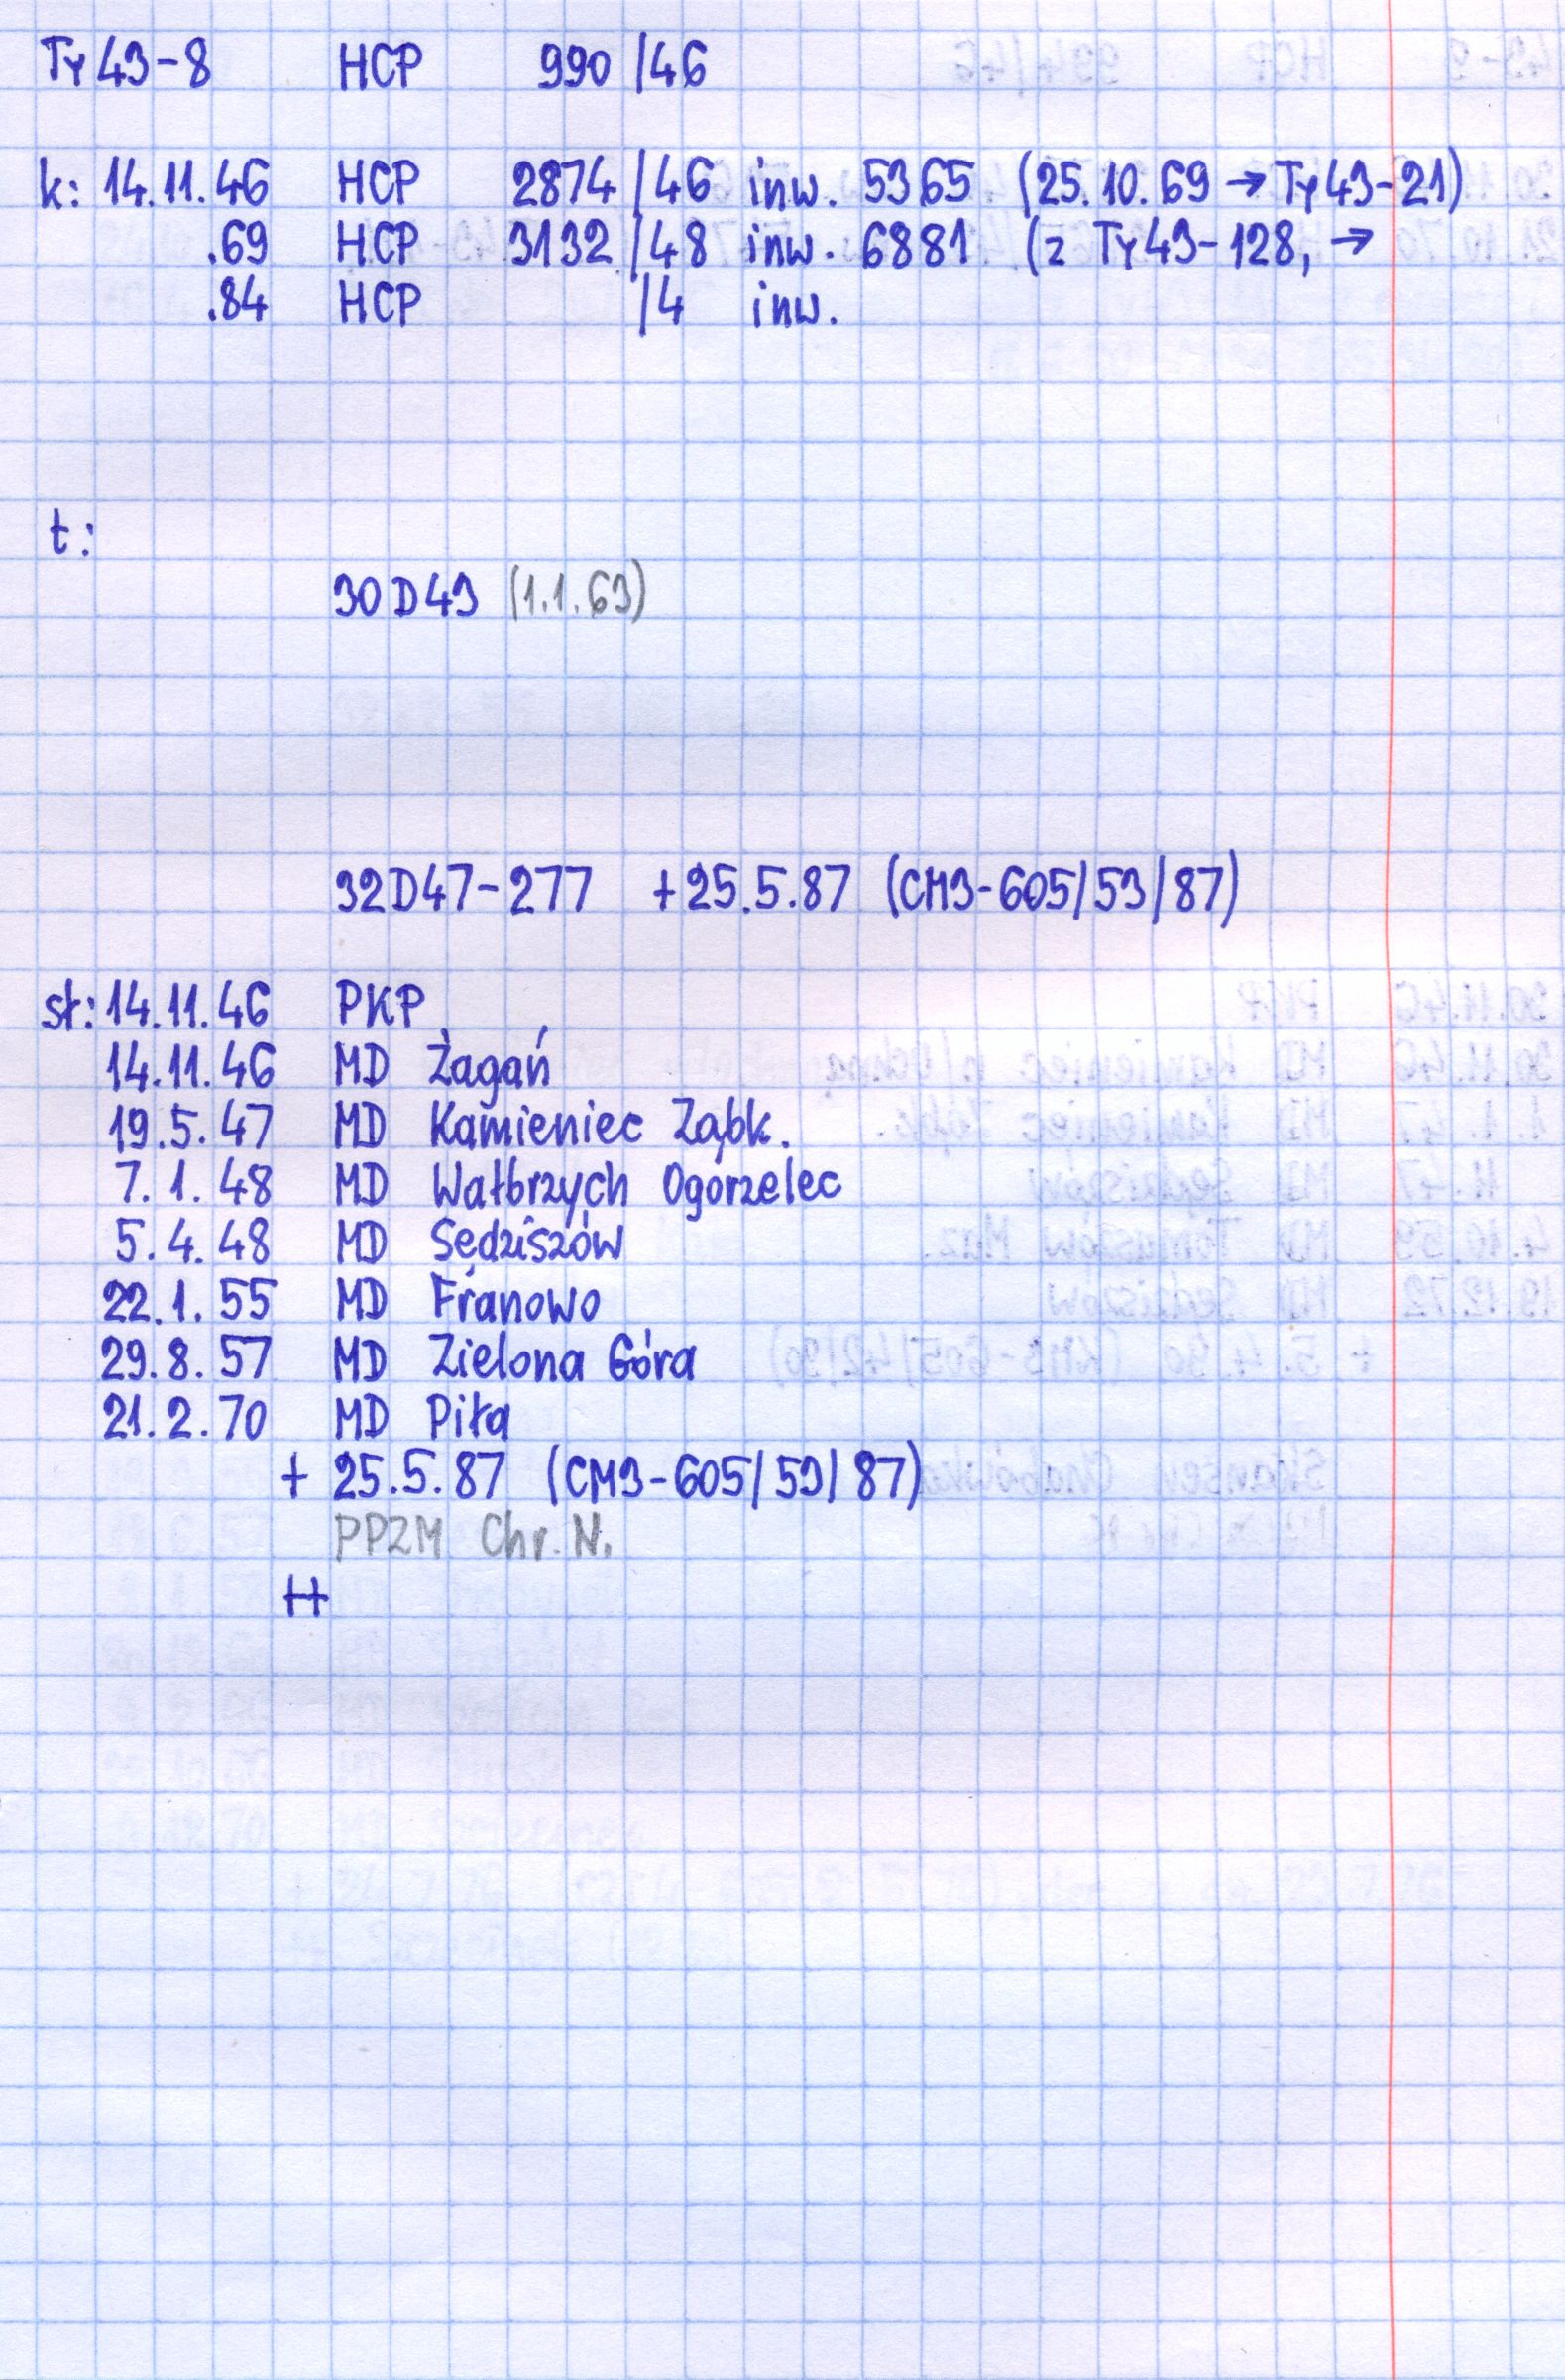 Ty43-8 HCP 990/46
k: 14.11.46 HCP 2874/46 inw. 5365 (25.10.69 → Ty43-21)
.69 HCP 3132/48 inw. 6881 (z Ty43-128, →
.84 HCP /4 inw.
t:
30D43 (1.1.63)
32D47-277 +25.5.87 (CM3-605/53/87)
st: 14.11.46 PKP
14.11.46 MD Żagań
19.5.47 MD Kamieniec Ząbk.
7.1.48 MD Wałbrzych Ogorzelec
5.4.48 MD Sędziszów
22.1.55 MD Franowo
29.8.57 MD Zielona Góra
21.2.70 MD Piła
+ 25.5.87 (CM3-605/53/87)
PPZM Chr. N.
++